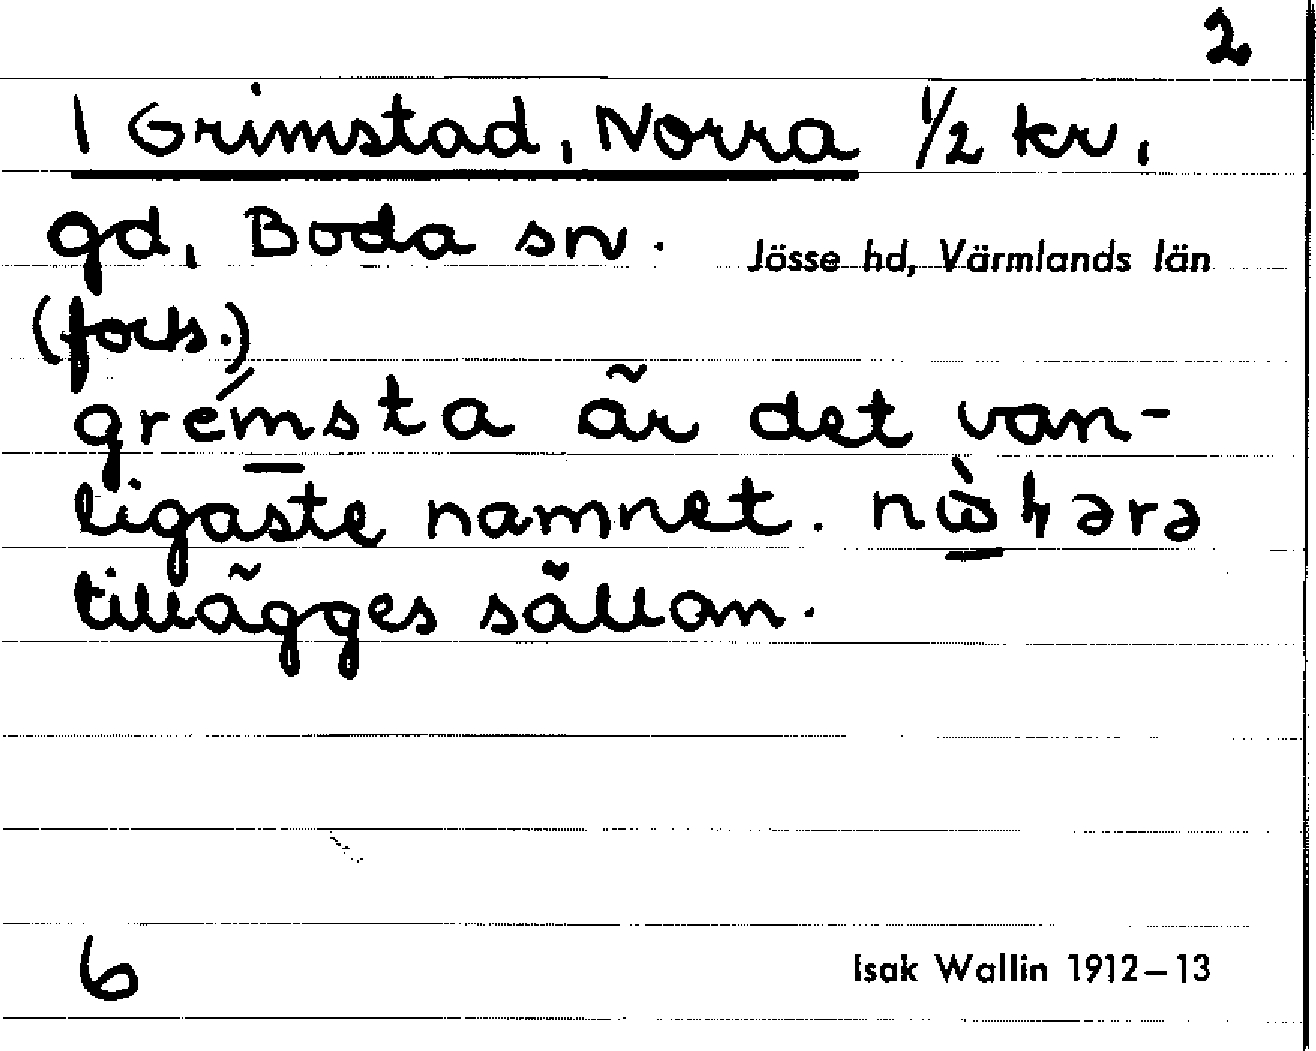 2
1 Grimstad, Norra 1/2 kr,
gd, Boda sn. Jösse hd, Värmlands län
(forts.)
grémsta är det van-
ligaste namnet.
tillägges sällan.
6 Isak Wallin 1912–13